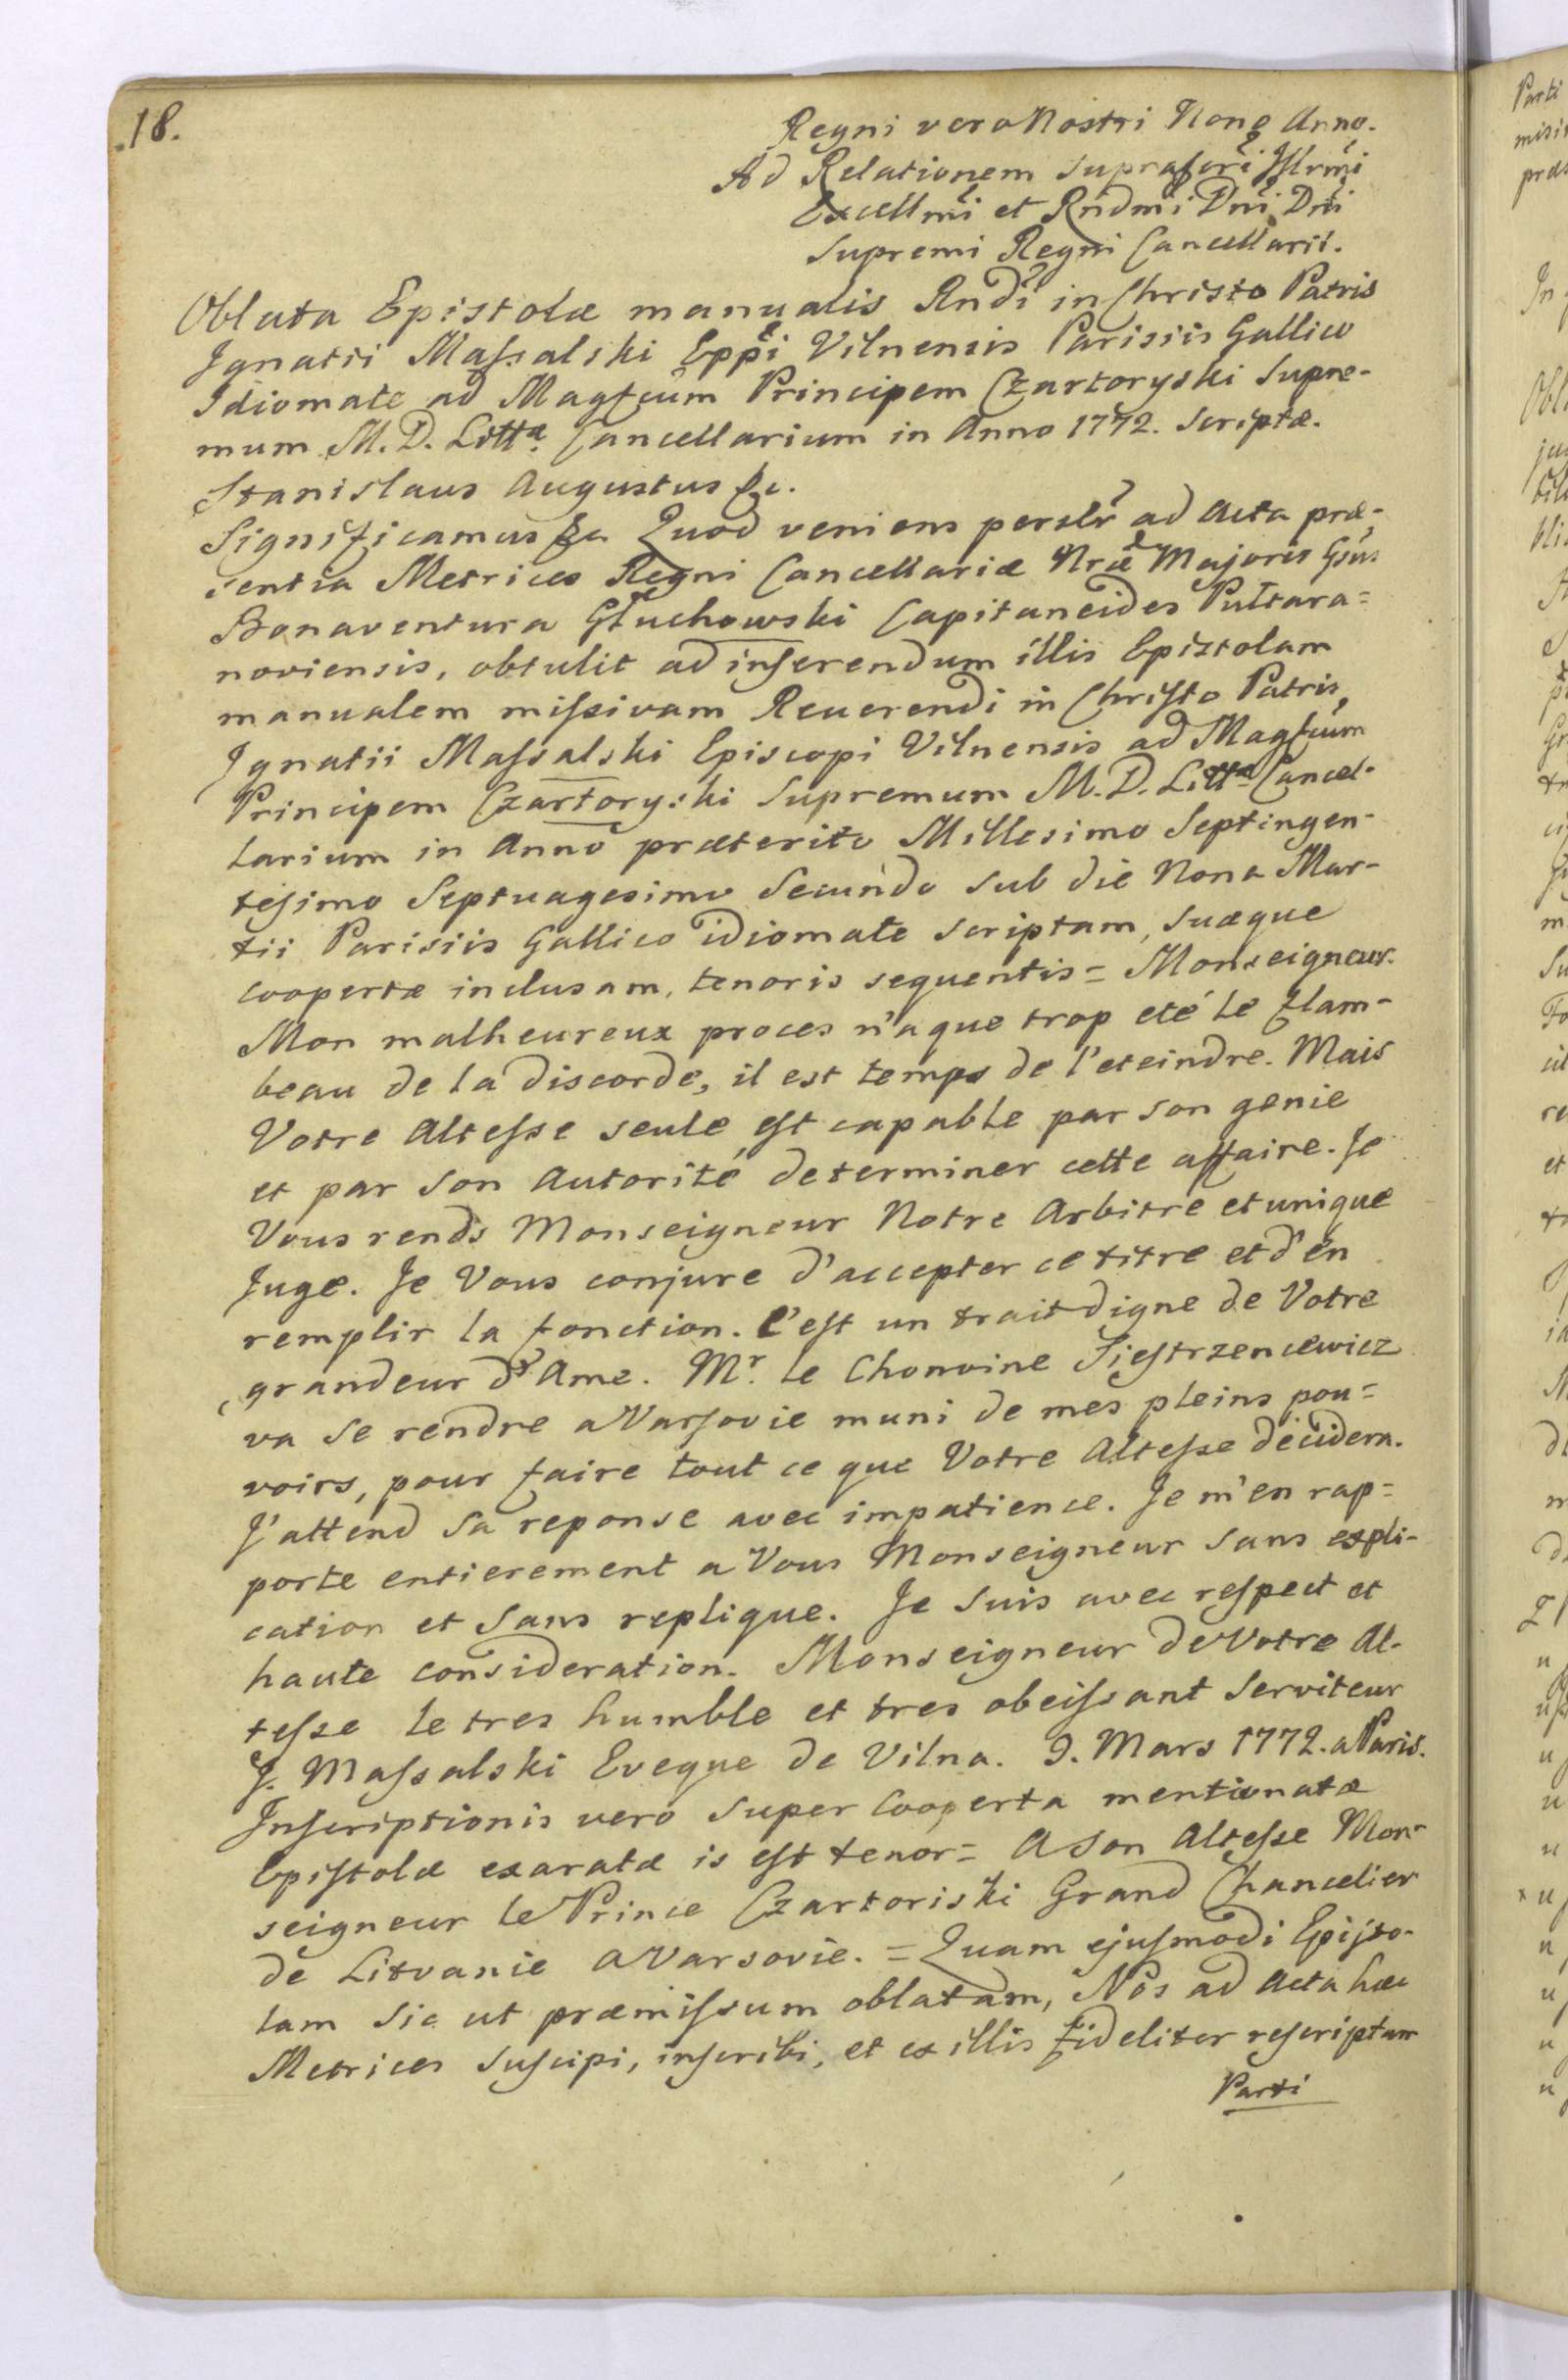 18.
Regni vero Nostri Nono Anno.
Ad Relationem supraferi Jllrmi
Excellmi et Rndmi Dni Dni
Supremi Regni Cancellarii.
Oblata Epistolæ manualis Rndi in Christo Patris
Jgnatii Maſsalski Eppi Vilnensis Parisiis Gallico
Idiomate ad Magfcum Principem Czartoryski Supre-
mum M. D. Littæ. Cancellarium in Anno 1772. scriptæ.
Stanislaus Augustus &c.
Significamus &c Quod veniens persler ad Acta præ-
sentia Metrices Regni Cancellariæ Nræ Majoris Gsus
Bonaventura Głuchowski Capitaneides Pultara=
noviensis, obtulit ad inſerendum illis Epistolam
manualem miſsivam Reuerendi in Chriſto Patris
Jgnatii Maſsalski Episcopi Vilnensis ad Magfcum
Principem Czartoryski Supremum M. D. Littæ Cancel-
larium in Anno præterito Millesimo Septingen-
teſimo Septuagesimo Secundo sub die Nona Mar-
tii Parisiis Gallico idiomate scriptam, suæque
coopertæ inclusam, tenoris sequentis = Monseigneur.
Mon malheureux proces n'a que trop eté le flam-
beau de la discorde, il est temps de l'eteindre. Mais
Votre Alteſse seule eſt capable par son genie
et par son Autorité determiner cette affaire. Je
Vous rends Monseigneur Notre Arbitre et unique
Juge. Je Vous conjure d'accepter ce titre et d'en
remplir la fonction. C'eſt un trait digne de Votre
grandeur d'Ame. Mr. le Chonoine Sieſtrzencewicz
va se rendre a Varſovie muni de mes pleins pou=
voirs, pour faire tout ce que Votre Alteſse decidera.
J'attend sa reponse avec impatience. Je m'en rap=
porte entierement a Vous Monseigneur sans expli-
cation et sans replique. Je suis avec reſpect et
haute consideration. Monseigneur de Votre Al-
teſse le tres humble et tres obeiſsant Serviteur
J. Maſsalski Eveque de Vilna. 9. Mars 1772. a Paris.
Jnſcriptionis vero super Cooperta mentionatæ
Epiſtolæ exaratæ is eſt tenor = A Son Alteſse Mon-
seigneur le Prince Czartoriski Grand Chancelier
de Litvanie a Varsovie. = Quam ejuſmodi Epiſto-
lam sic ut præmiſsum oblatam, Nos ad Acta hæc
Metrices suſcipi, inſcribi, et ex illis fideliter reſcriptam
Parti